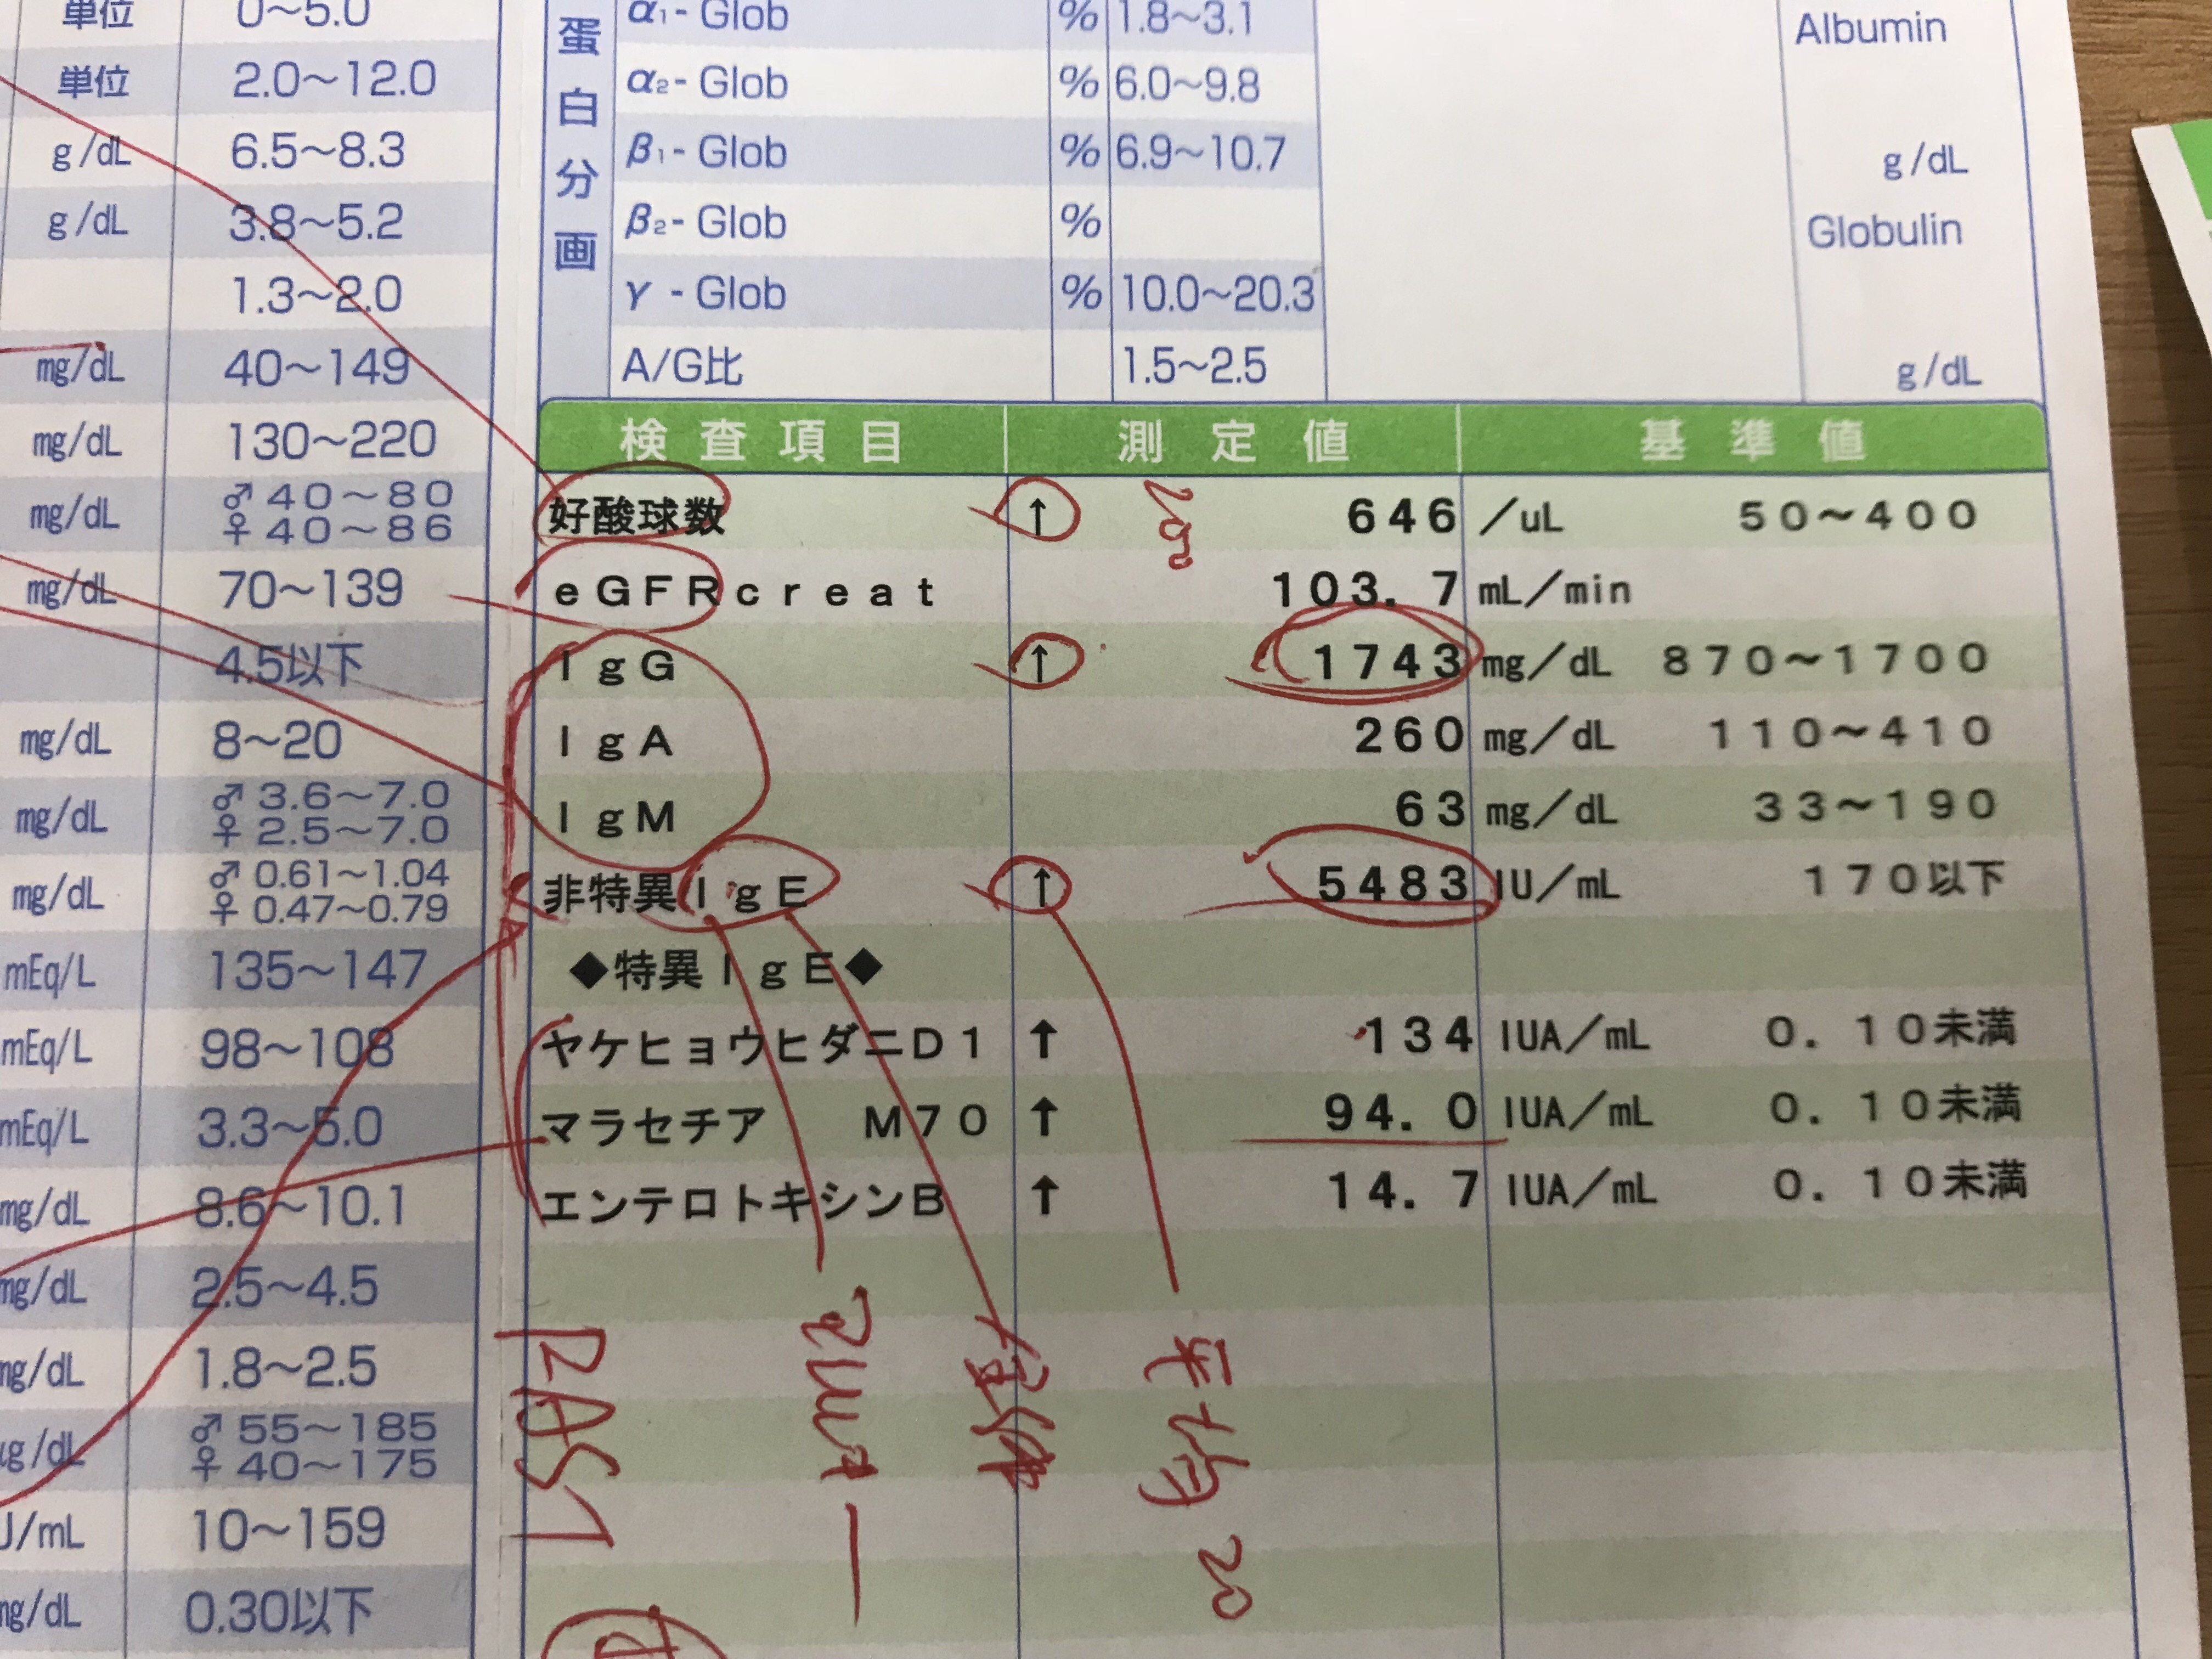 単位 0〜5.0
単位 2.0〜12.0
g/dL 6.5〜8.3
g/dL 3.8〜5.2
1.3〜2.0
mg/dL 40〜149
mg/dL 130〜220
mg/dL ♂40〜80
♀40〜86
mg/dL 70〜139
4.5以下
mg/dL 8〜20
mg/dL ♂3.6〜7.0
♀2.5〜7.0
mg/dL ♂0.61〜1.04
♀0.47〜0.79
mEq/L 135〜147
mEq/L 98〜108
mEq/L 3.3〜5.0
mg/dL 8.6〜10.1
mg/dL 2.5〜4.5
mg/dL 1.8〜2.5
μg/dL ♂55〜185
♀40〜175
U/mL 10〜159
mg/dL 0.30以下
蛋白分画
α₁- Glob % 1.8〜3.1
α₂- Glob % 6.0〜9.8
β₁- Glob % 6.9〜10.7
β₂- Glob %
γ - Glob % 10.0〜20.3
A/G比 1.5〜2.5
Albumin
g/dL
Globulin
g/dL
検査項目 測定値 基準値
好酸球数 ↑ 646 /uL 50〜400
eGFRcreat 103.7 mL/min
IgG ↑ 1743 mg/dL 870〜1700
IgA 260 mg/dL 110〜410
IgM 63 mg/dL 33〜190
非特異IgE ↑ 5483 IU/mL 170以下
◆特異IgE◆
ヤケヒョウヒダニD1 ↑ 134 IUA/mL 0.10未満
マラセチア M70 ↑ 94.0 IUA/mL 0.10未満
エンテロトキシンB ↑ 14.7 IUA/mL 0.10未満
RAST
平均 20